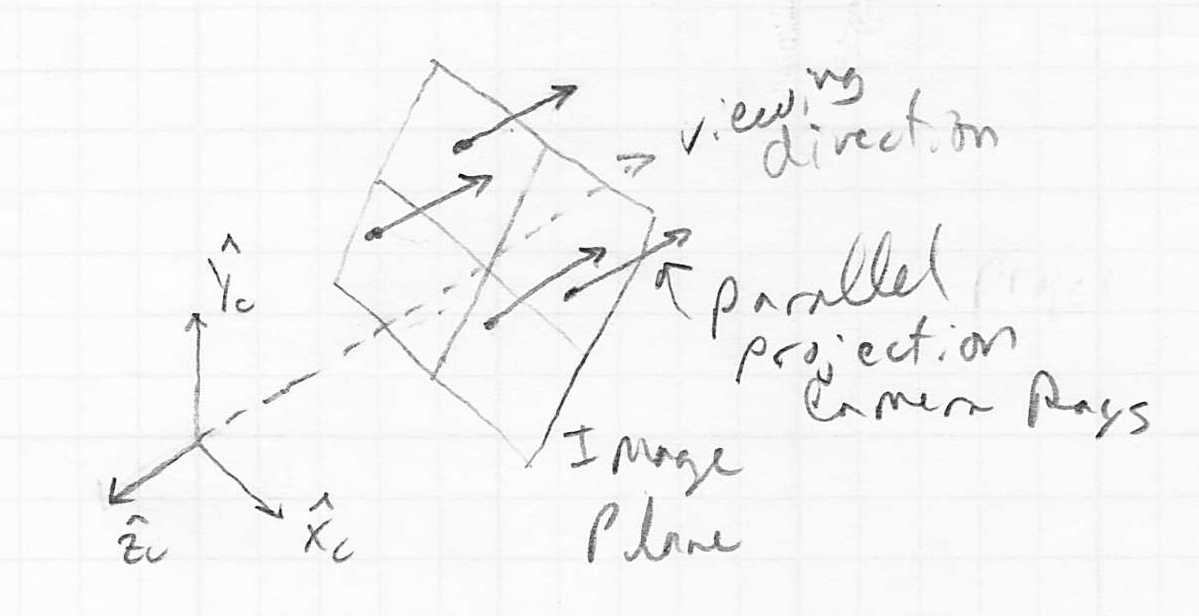 viewing
direction
Ŷc
parallel
projection
Camera Rays
Image
Plane
ẑc
x̂c